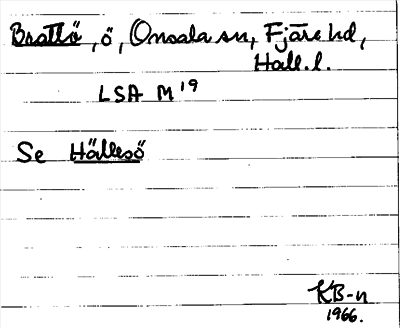 Brattö, ö, Onsala sn, Fjäre hd,
Hall. l.
LSA M 19
Se Hällesö
KB-n
1966.